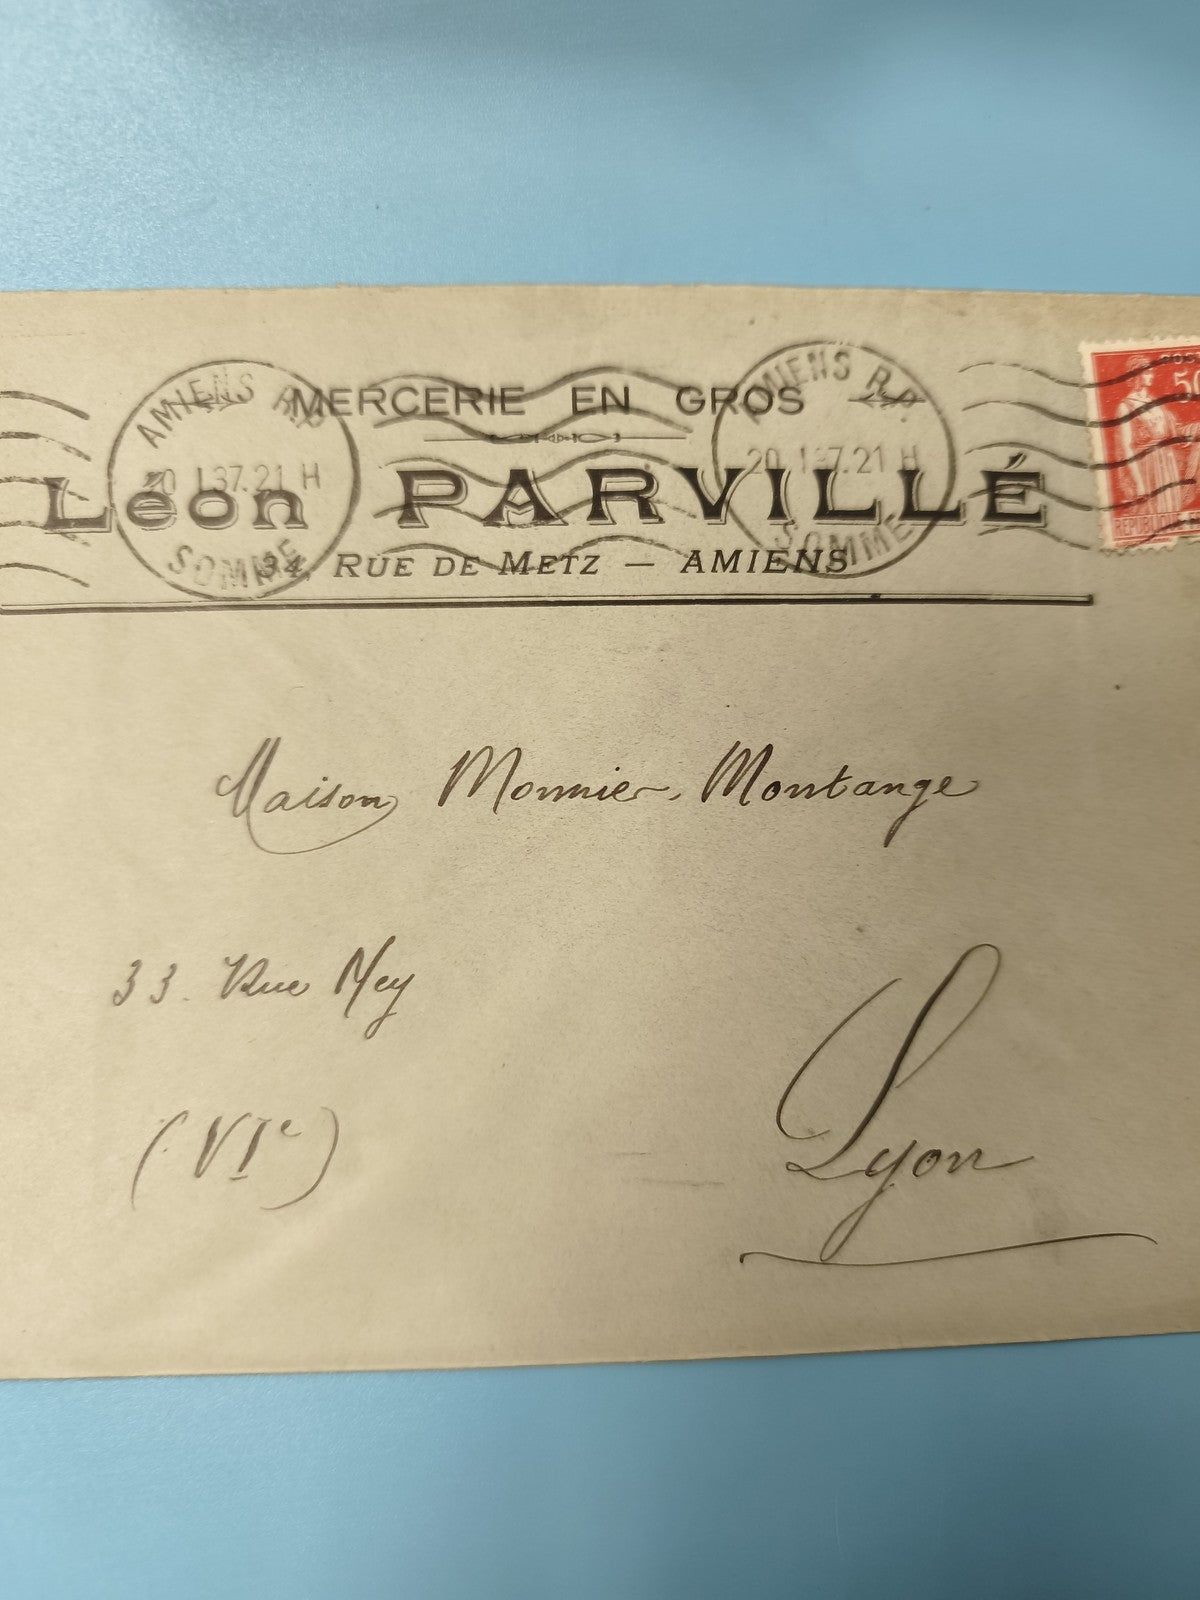 MERCERIE EN GROS
Léon PARVILLÉ
34, RUE DE METZ — AMIENS
AMIENS R.P.
20 I 37.21 H
SOMME
AMIENS R.P.
20 I 37.21 H
SOMME
50
Maison Monnier-Montange
33. Rue Ney
(VIe)
Lyon